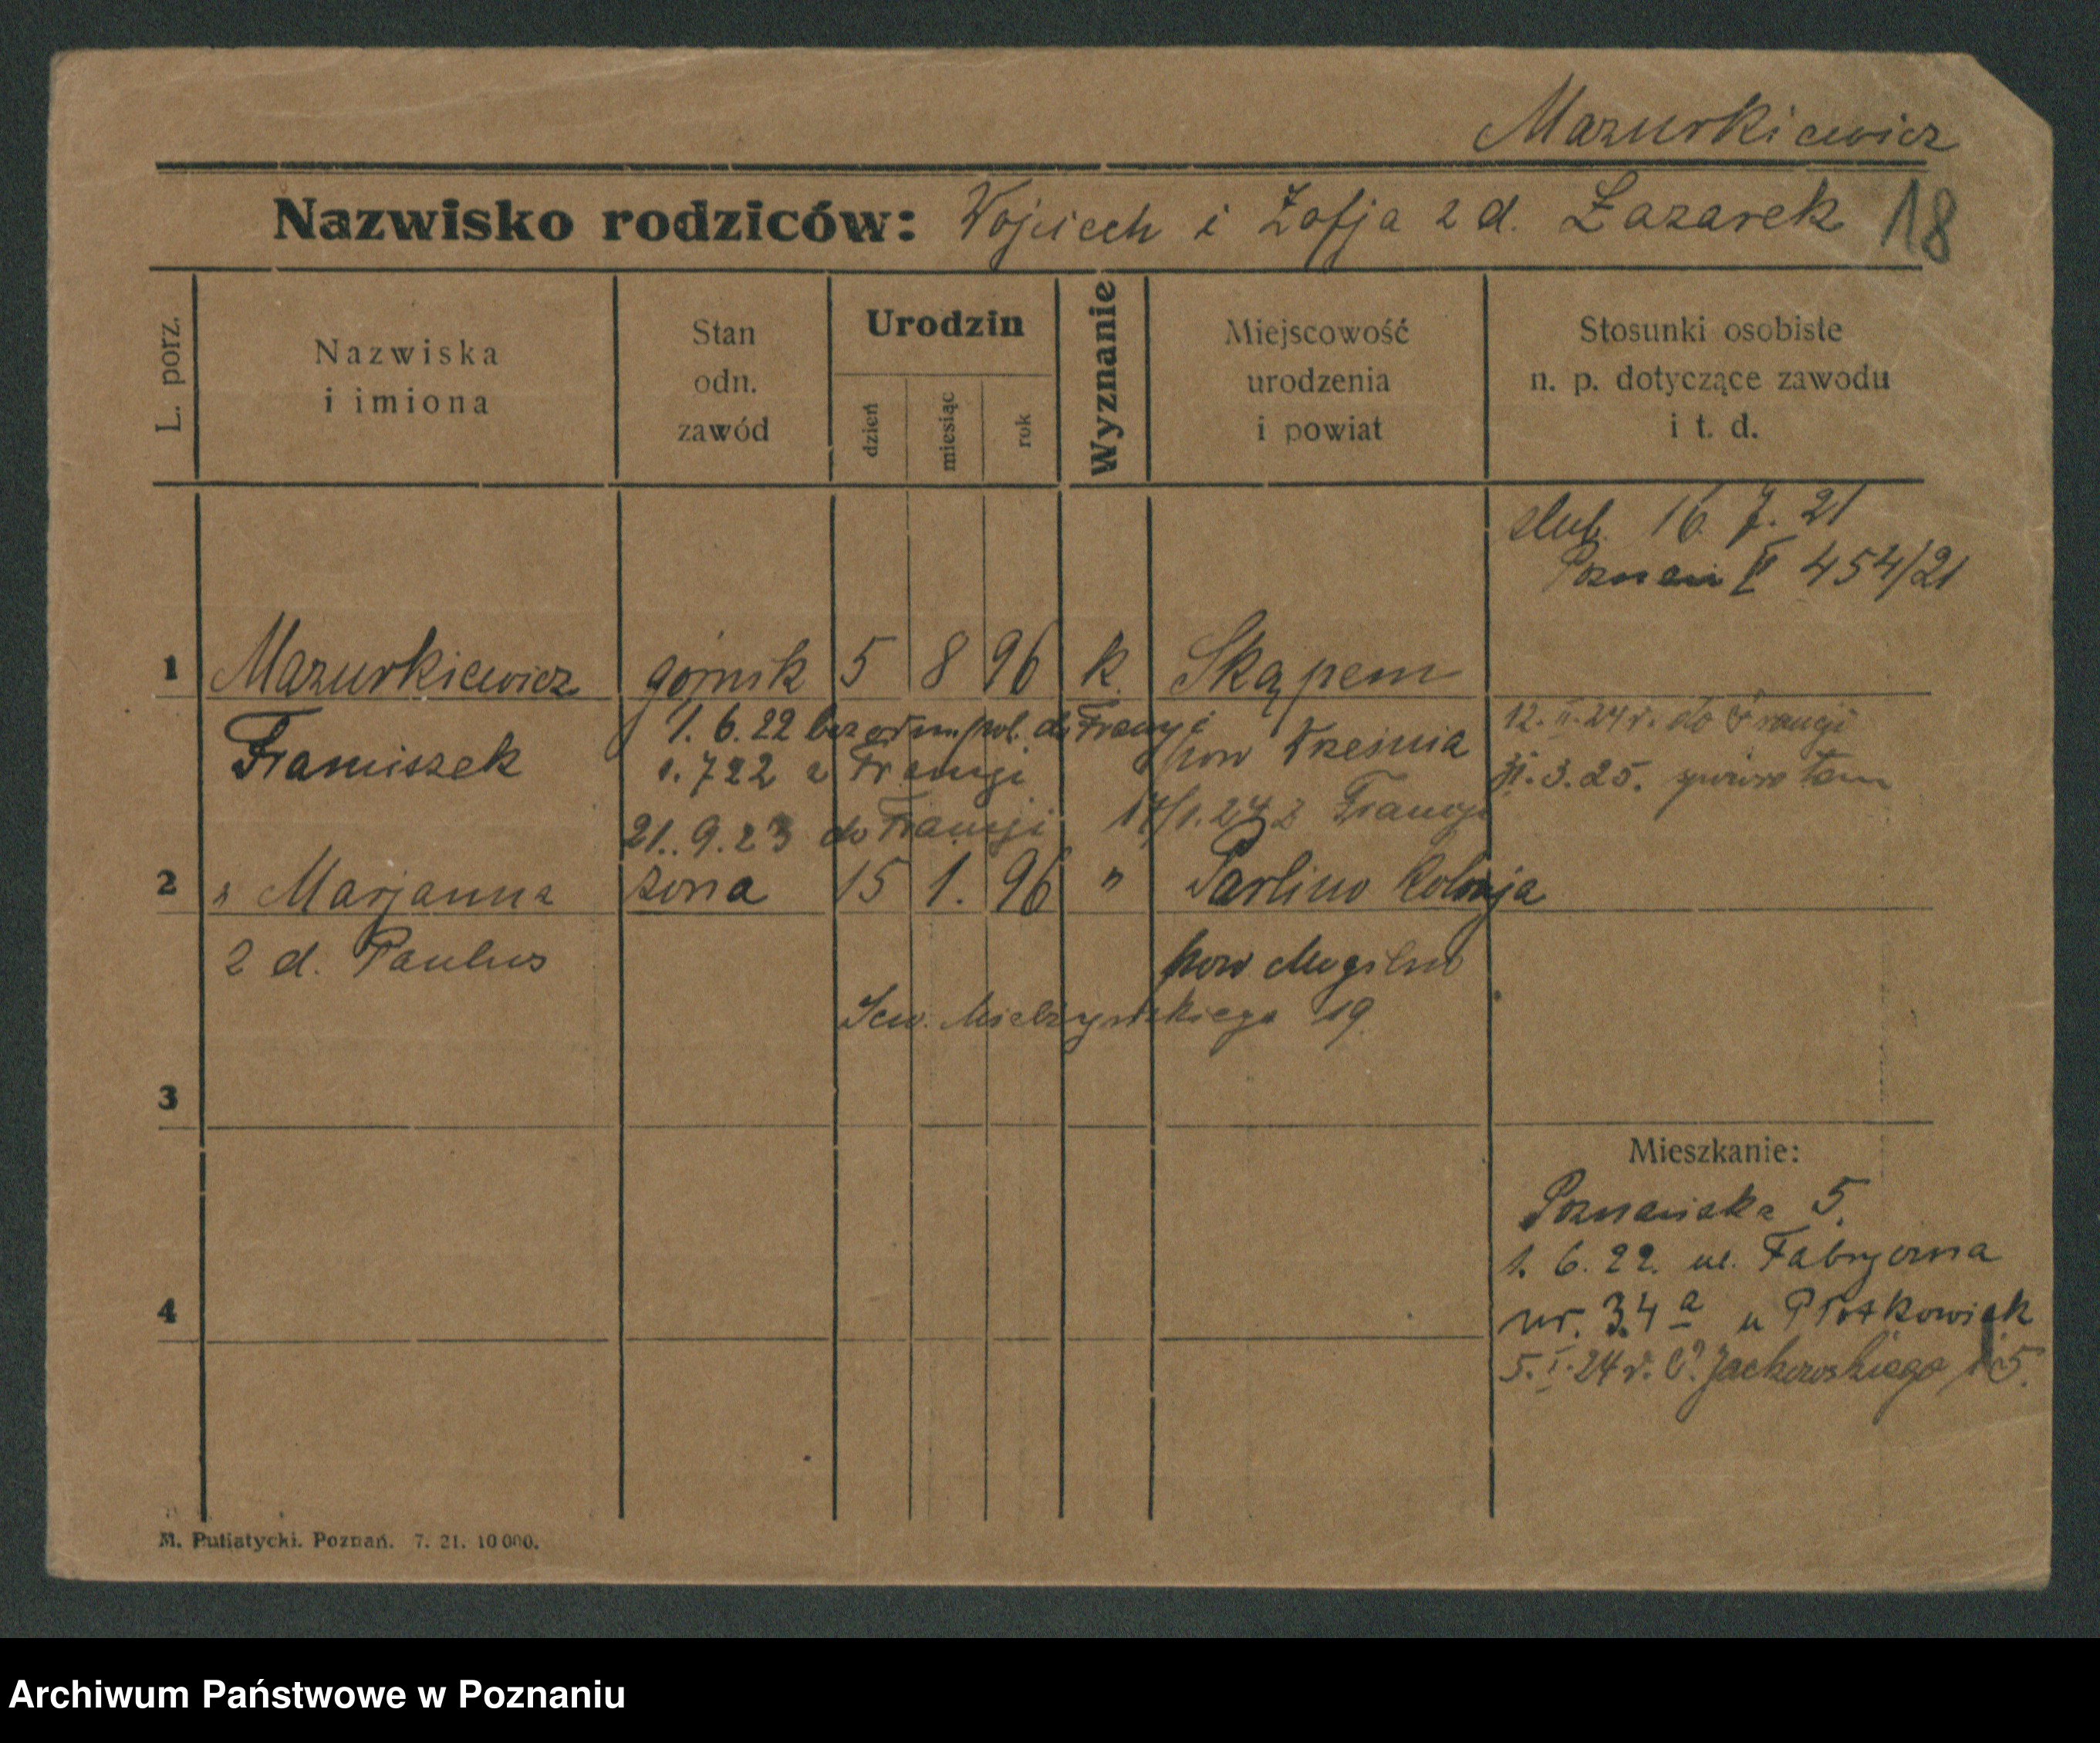 Mazurkiewicz
Nazwisko rodziców: Wojciech i Zofja z d. Łazarek 18
L. porz.
Nazwiska
i imiona
Stan
odn.
zawód
Urodzin
dzień
miesiąc
rok
Wyznanie
Miejscowość
urodzenia
i powiat
Stosunki osobiste
n. p. dotyczące zawodu
i t. d.
ślub. 16. 7. 21
Poznań 454/21
1 Mazurkiewicz górnik 5 8 96 k. Skąpem
Franciszek
1. 6. 22 bez do Francji
pow Września
12. II. 24 r. do Francji
1.722 z Francji
31. 3. 25. zpowrotem
21. 9. 23 do Francji
17/1. 24 z Francji
2 " Marjanna żona 15 1. 96 " Parlino Kolonja
z d. Paulus
pow Mogilno
Mielżyńskiego 19
3
Mieszkanie:
Poznańska 5.
1. 6. 22. ul. Fabryczna
4
nr. 34 a u Piotrkowiak
5. I. 24 r. Jackowskiego 15.
M. Putiatycki. Poznań. 7. 21. 10 000.
Archiwum Państwowe w Poznaniu